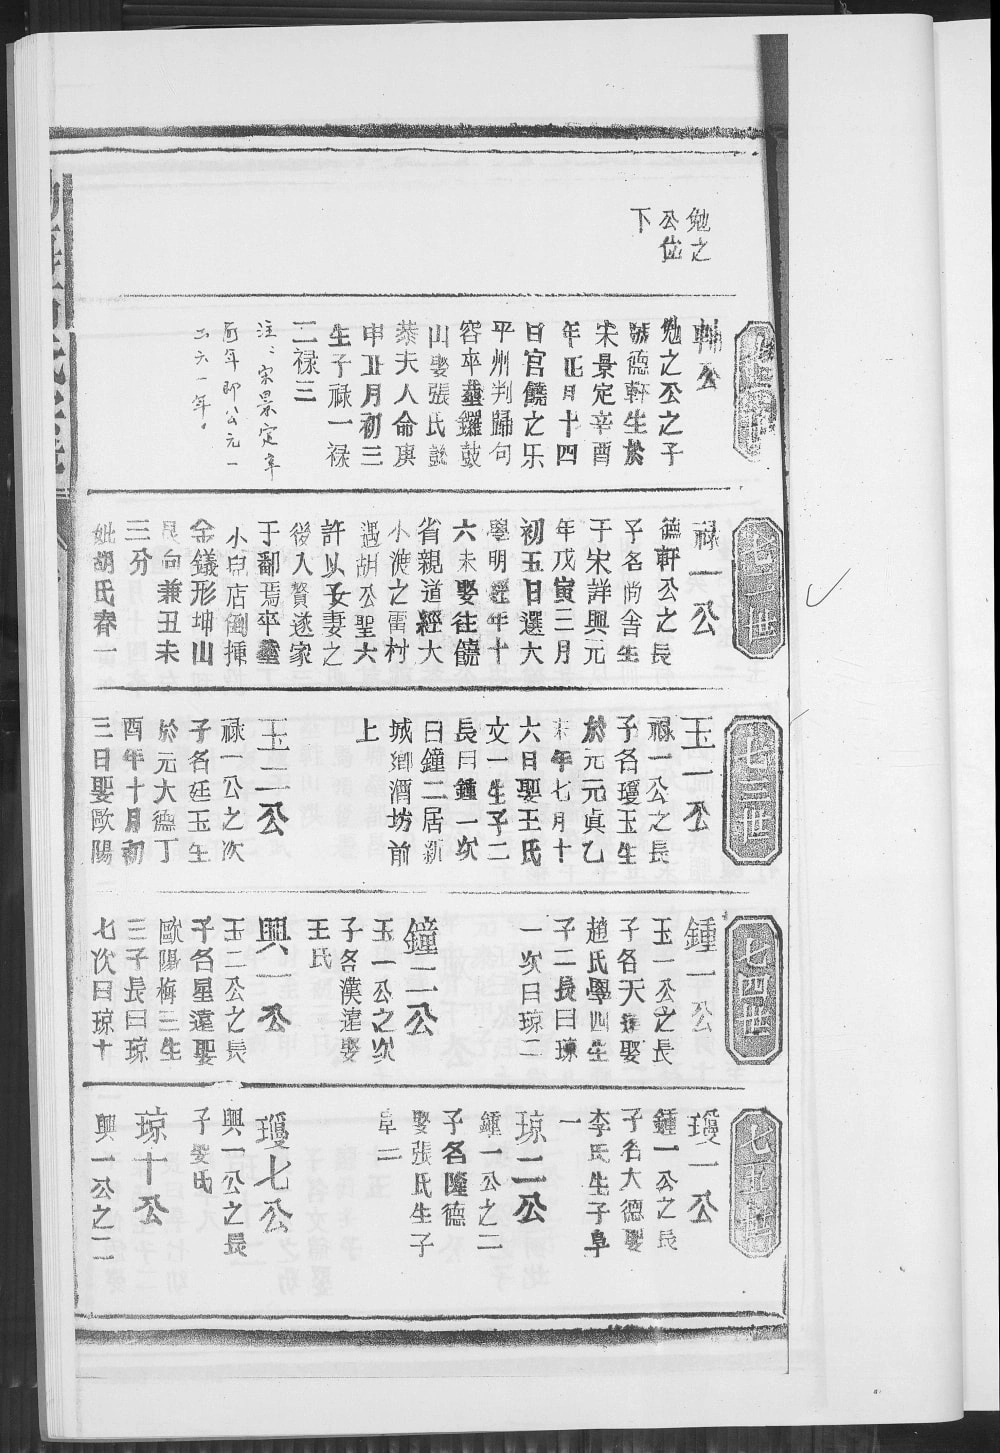 勉之
公位
下
七一世
輔公
勉之公之子
號德軒生於
宋景定辛酉
年正月十四
日官饒之乐
平州判歸句
容卒塟鑼鼓
山娶張氏懿
恭夫人命庚
申正月初三
生子禄一禄
二禄三
注：宋景定辛
酉年即公元一
二六一年。
七二世
禄一公
德軒公之長
子名尚舍生
于宋詳興元
年戊寅三月
初五日選大
學明經年十
六未娶往饒
省親道經大
小渡之雷村
遇胡公聖六
許以女妻之
後入贅遂家
于鄱焉卒塟
小白店倒揷
金鋨形坤山
艮向兼丑未
三分
妣胡氏春一
七三世
玉一公
禄一公之長
子名瓊玉生
於元元貞乙
未年七月十
六日娶王氏
文一生子二
長曰鍾一次
曰鐘二居新
城鄉酒坊前
上
玉二公
禄一公之次
子名廷玉生
於元大德丁
酉年十月初
三日娶歐陽
七四世
鍾一公
玉一公之長
子名天達娶
趙氏學四生
子二長曰瓊
一次曰琼二
鐘二公
玉一公之次
子名漢達娶
王氏
興一公
玉二公之長
子名星遠娶
歐陽梅三生
三子長曰琼
七次曰琼十
七五世
瓊一公
鍾一公之長
子名大德娶
李氏生子阜
一
琼二公
鍾一公之二
子名隆德
娶張氏生子
阜二
瓊七公
興一公之長
子娶氏
琼十公
興一公之二